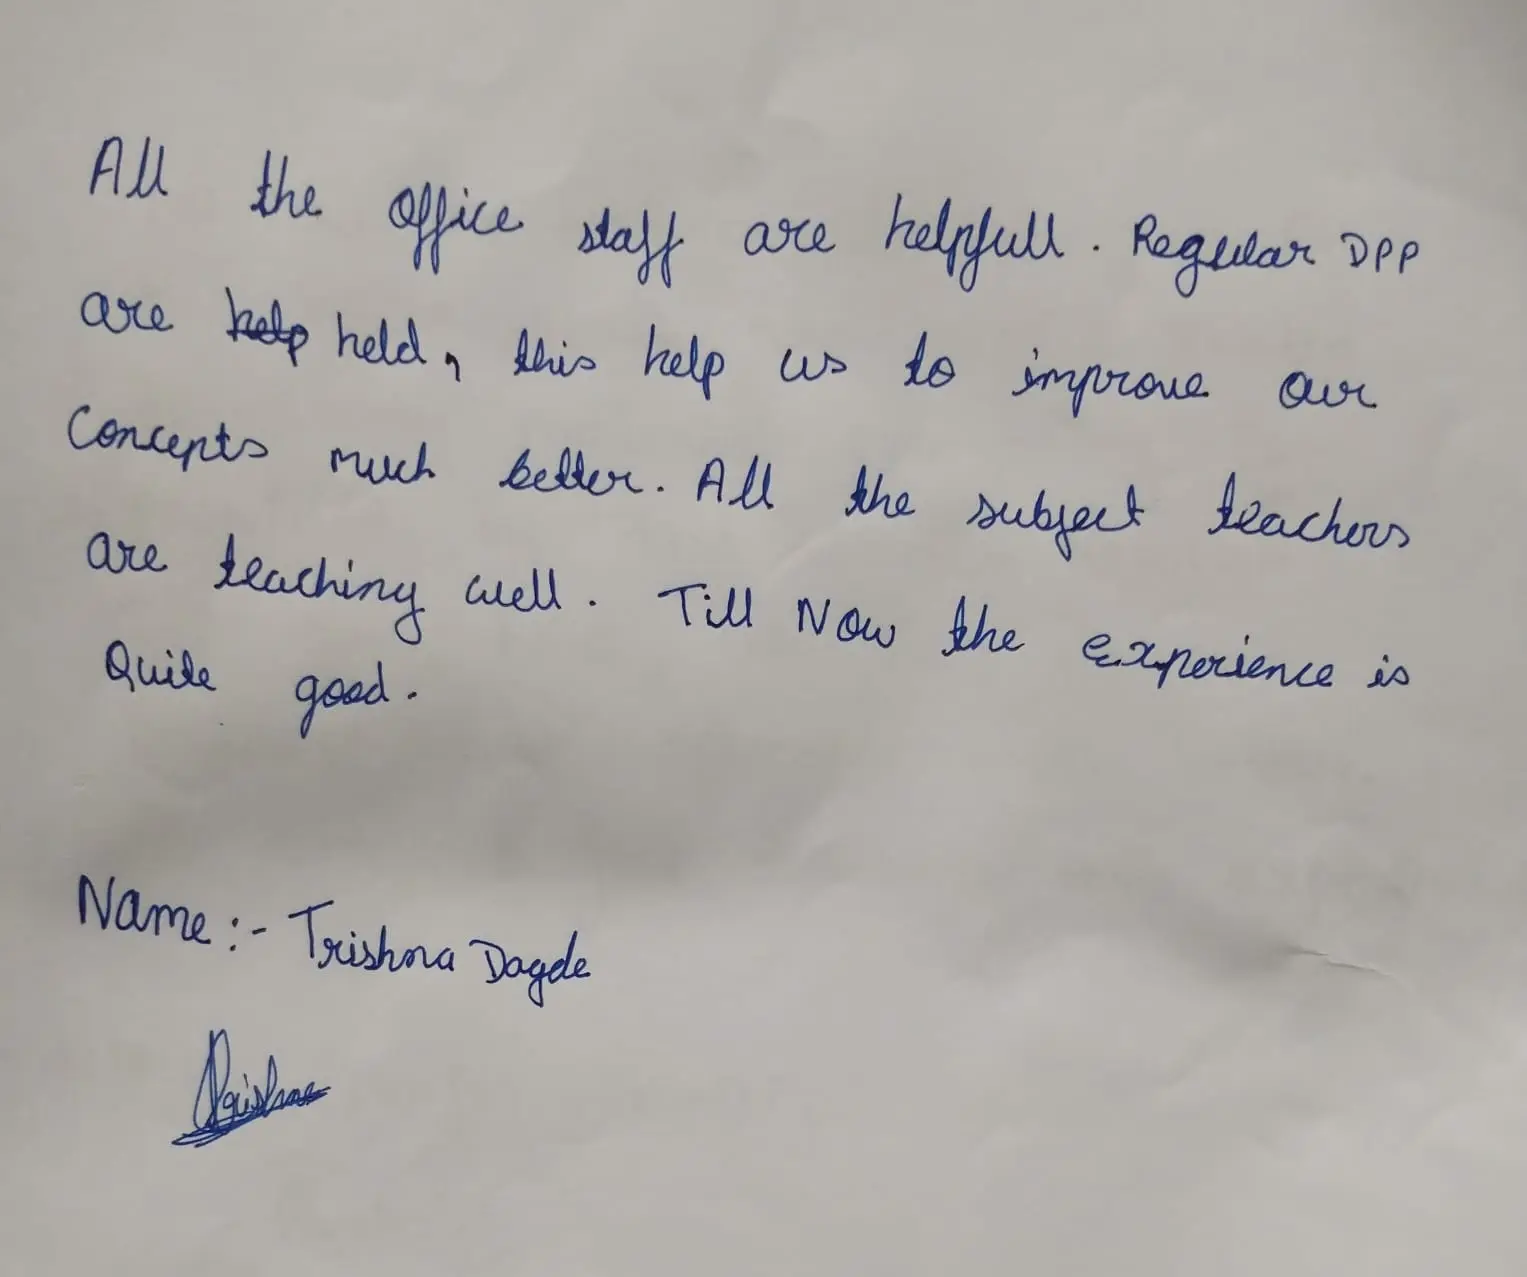 All the office staff are helpfull. Regular DPP
are help held, this help us to improve our
Concepts much better. All the subject teachers
are teaching well. Till Now the experience is
Quite good.
Name :- Trishna Dagde
Trishna